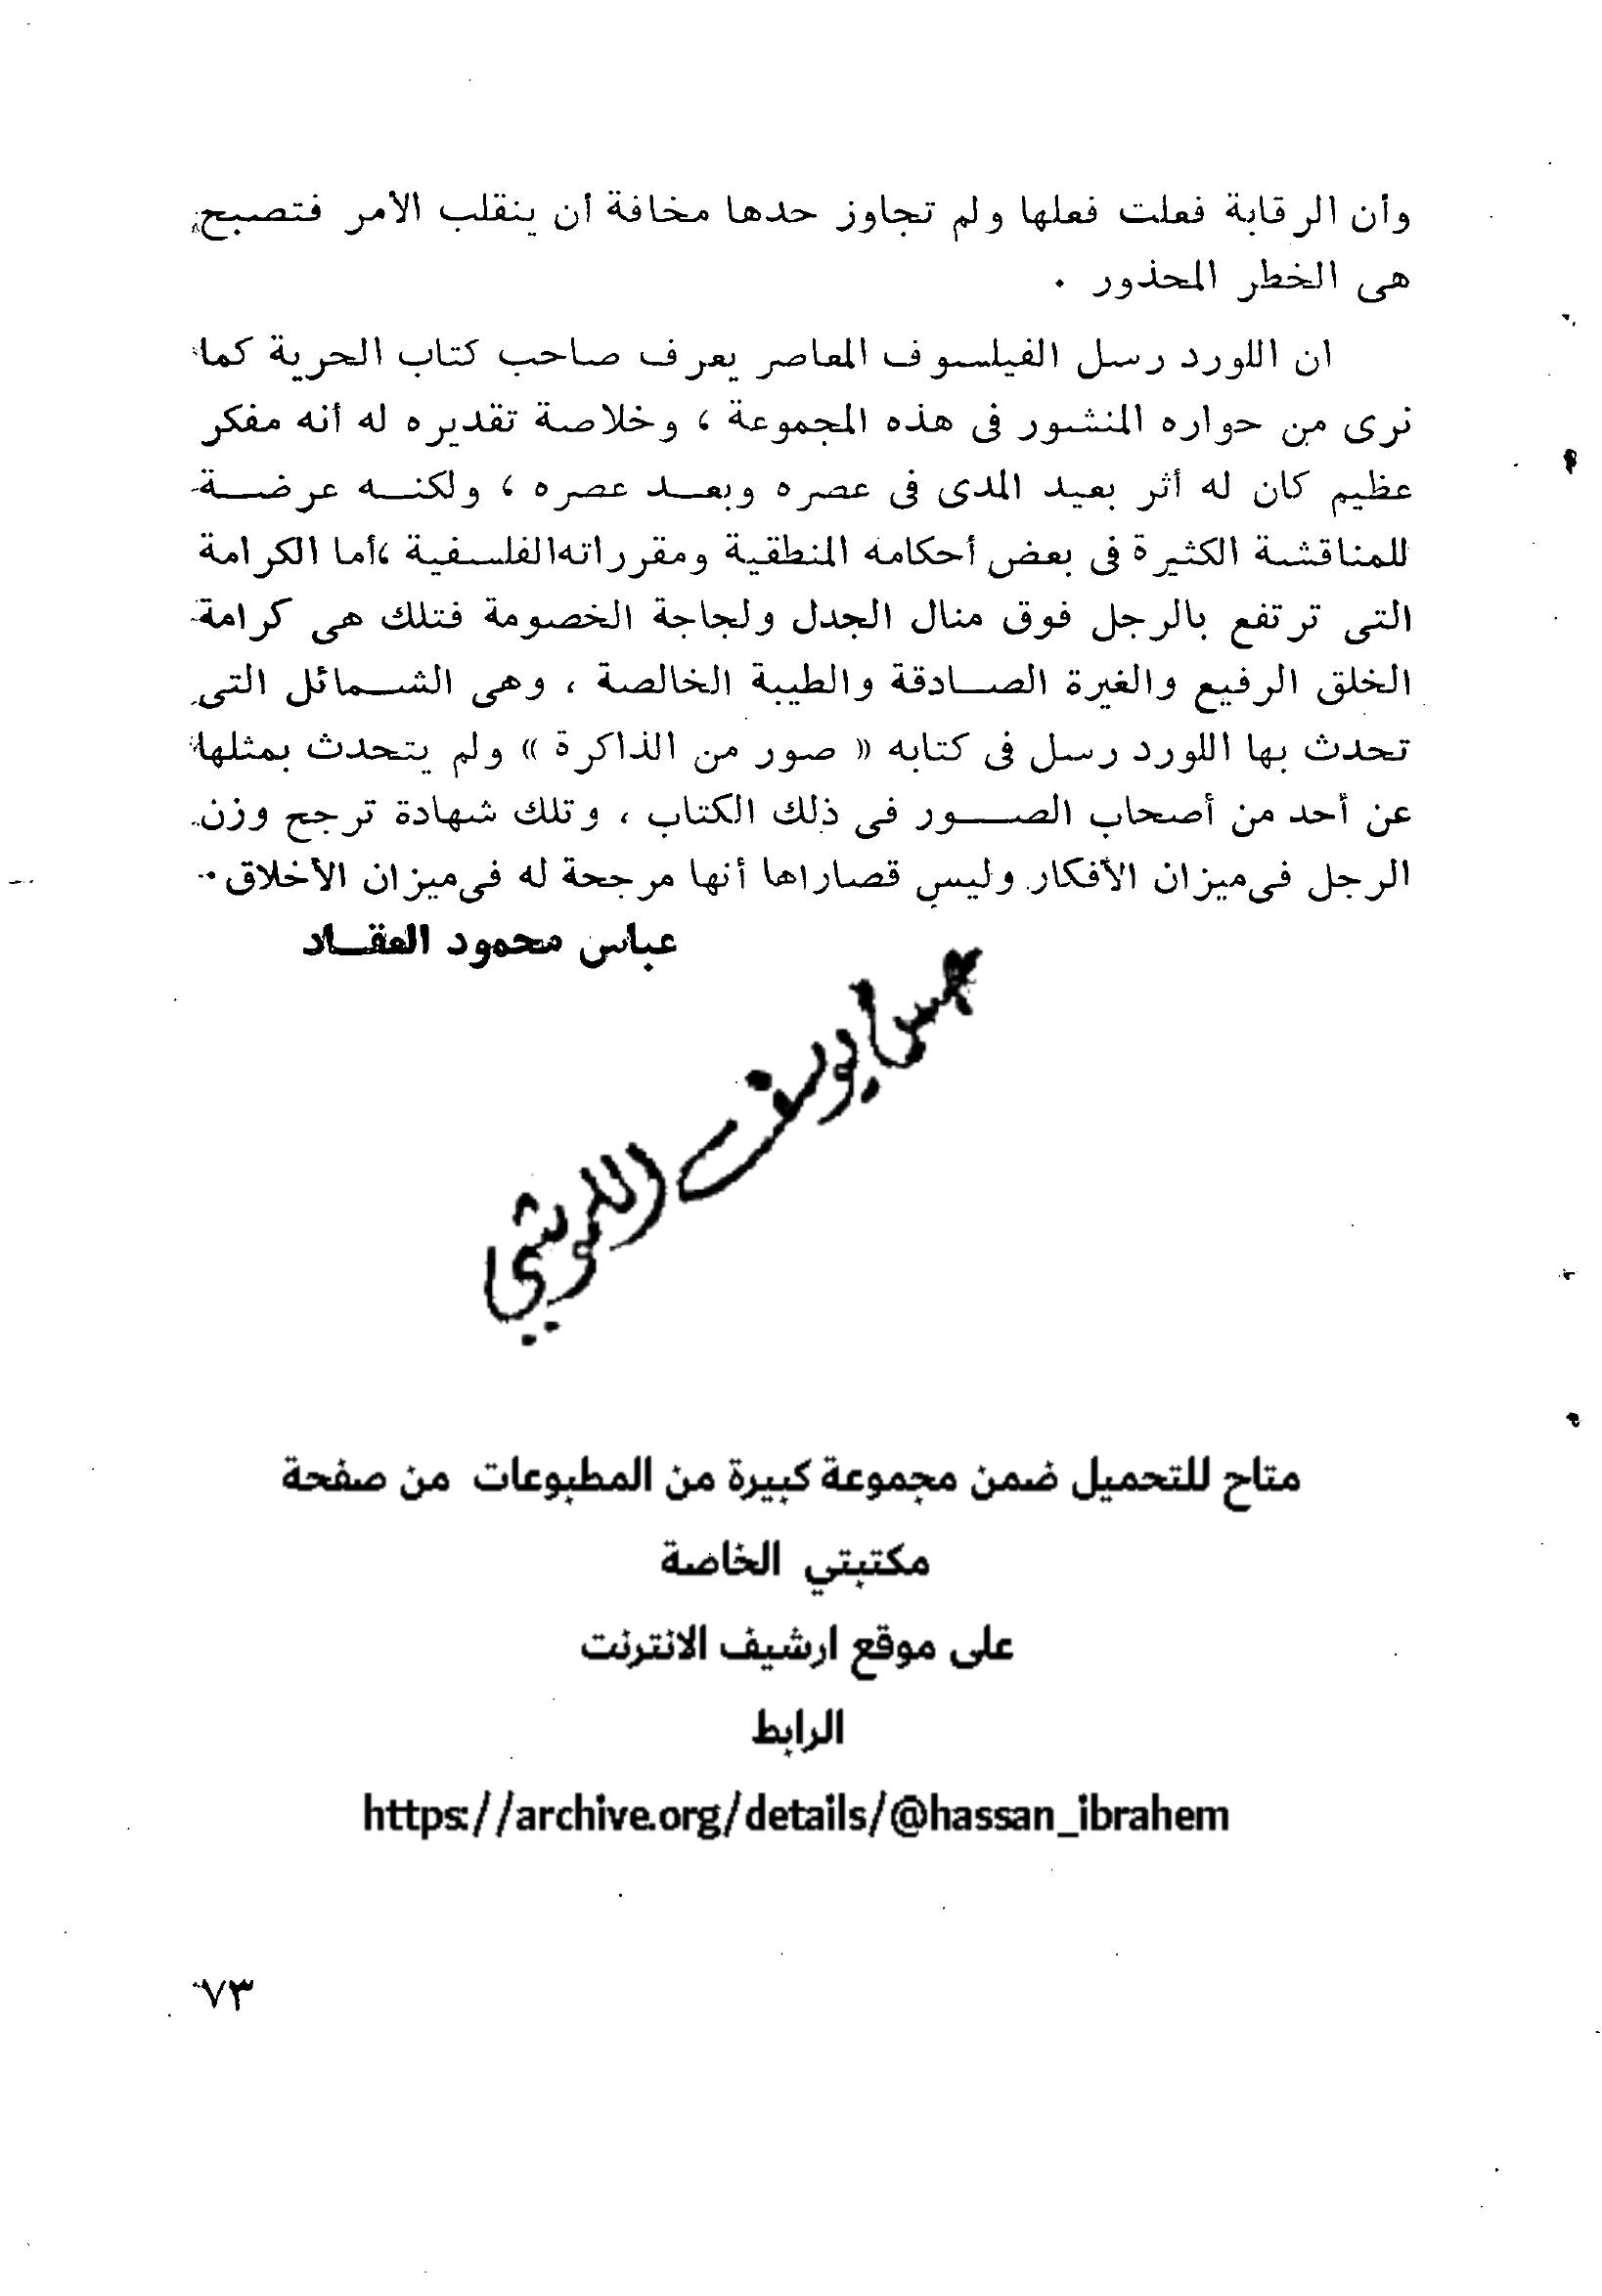 وأن الرقابة فعلت فعلها ولم تجاوز حدها مخافة أن ينقلب الأمر فتصبح
هى الخطر المحذور .
ان اللورد رسل الفيلسوف المعاصر يعرف صاحب كتاب الحرية كما
نرى من حواره المنشور فى هذه المجموعة ، وخلاصة تقديره له أنه مفكر
عظيم كان له أثر بعيد المدى فى عصره وبعد عصره ، ولكنه عرضة
للمناقشة الكثيرة فى بعض أحكامه المنطقية ومقرراته الفلسفية ، أما الكرامة
التى ترتفع بالرجل فوق منال الجدل ولجاجة الخصومة فتلك هى كرامة
الخلق الرفيع والغيرة الصادقة والطيبة الخالصة ، وهى الشمائل التى
تحدث بها اللورد رسل فى كتابه « صور من الذاكرة » ولم يتحدث بمثلها
عن أحد من أصحاب الصور فى ذلك الكتاب ، وتلك شهادة ترجح وزن
الرجل فى ميزان الأفكار وليس قصاراها أنها مرجحة له فى ميزان الأخلاق .
عباس محمود العقاد
يوسف اللويشي
متاح للتحميل ضمن مجموعة كبيرة من المطبوعات من صفحة
مكتبتي الخاصة
على موقع ارشيف الانترنت
الرابط
https://archive.org/details/@hassan_ibrahem
٧٣